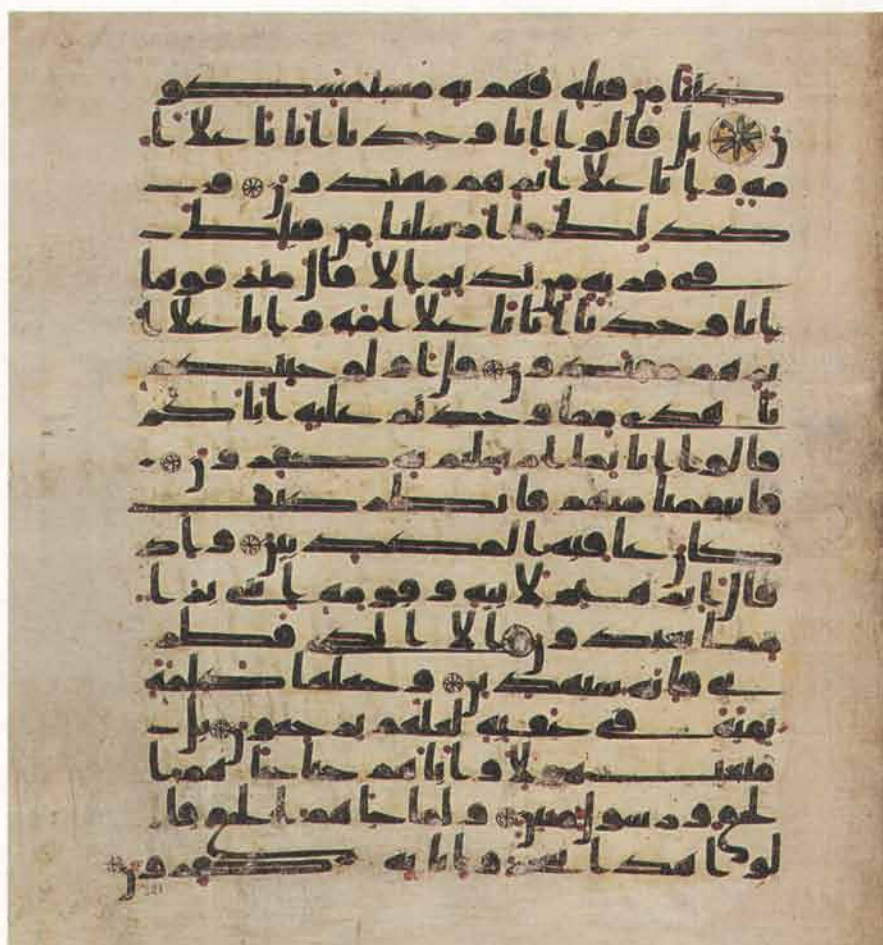 كتبا من قبله فهم به مستمسكو
ن بل قالوا انا وجدنا ابانا علا ا
مه وانا علا اثرهم مهتدون و
كذلك ما ارسلنا من قبلك
في قريه من نذير الا قال مترفوها
انا وجدنا ابانا علا امه وانا علا ا
ثرهم مقتدون قل اولو جئتكم
باهدى مما وجدتم عليه اباكم
قالوا انا بما ارسلتم به كفرون
فانتقمنا منهم فانظر كيف
كان عقبه المكذبين واذ
قال ابرهيم لابيه وقومه انني برا
مما تعبدون الا الذي فطر
ني فانه سيهدين وجعلها كلمة
بقيه في عقبه لعلهم يرجعون بل
متعت هولا واباهم حتا جاهم ا
لحق ورسول مبين ولما جاهم الحق قا
لوا هذا سحر وانا به كفرون